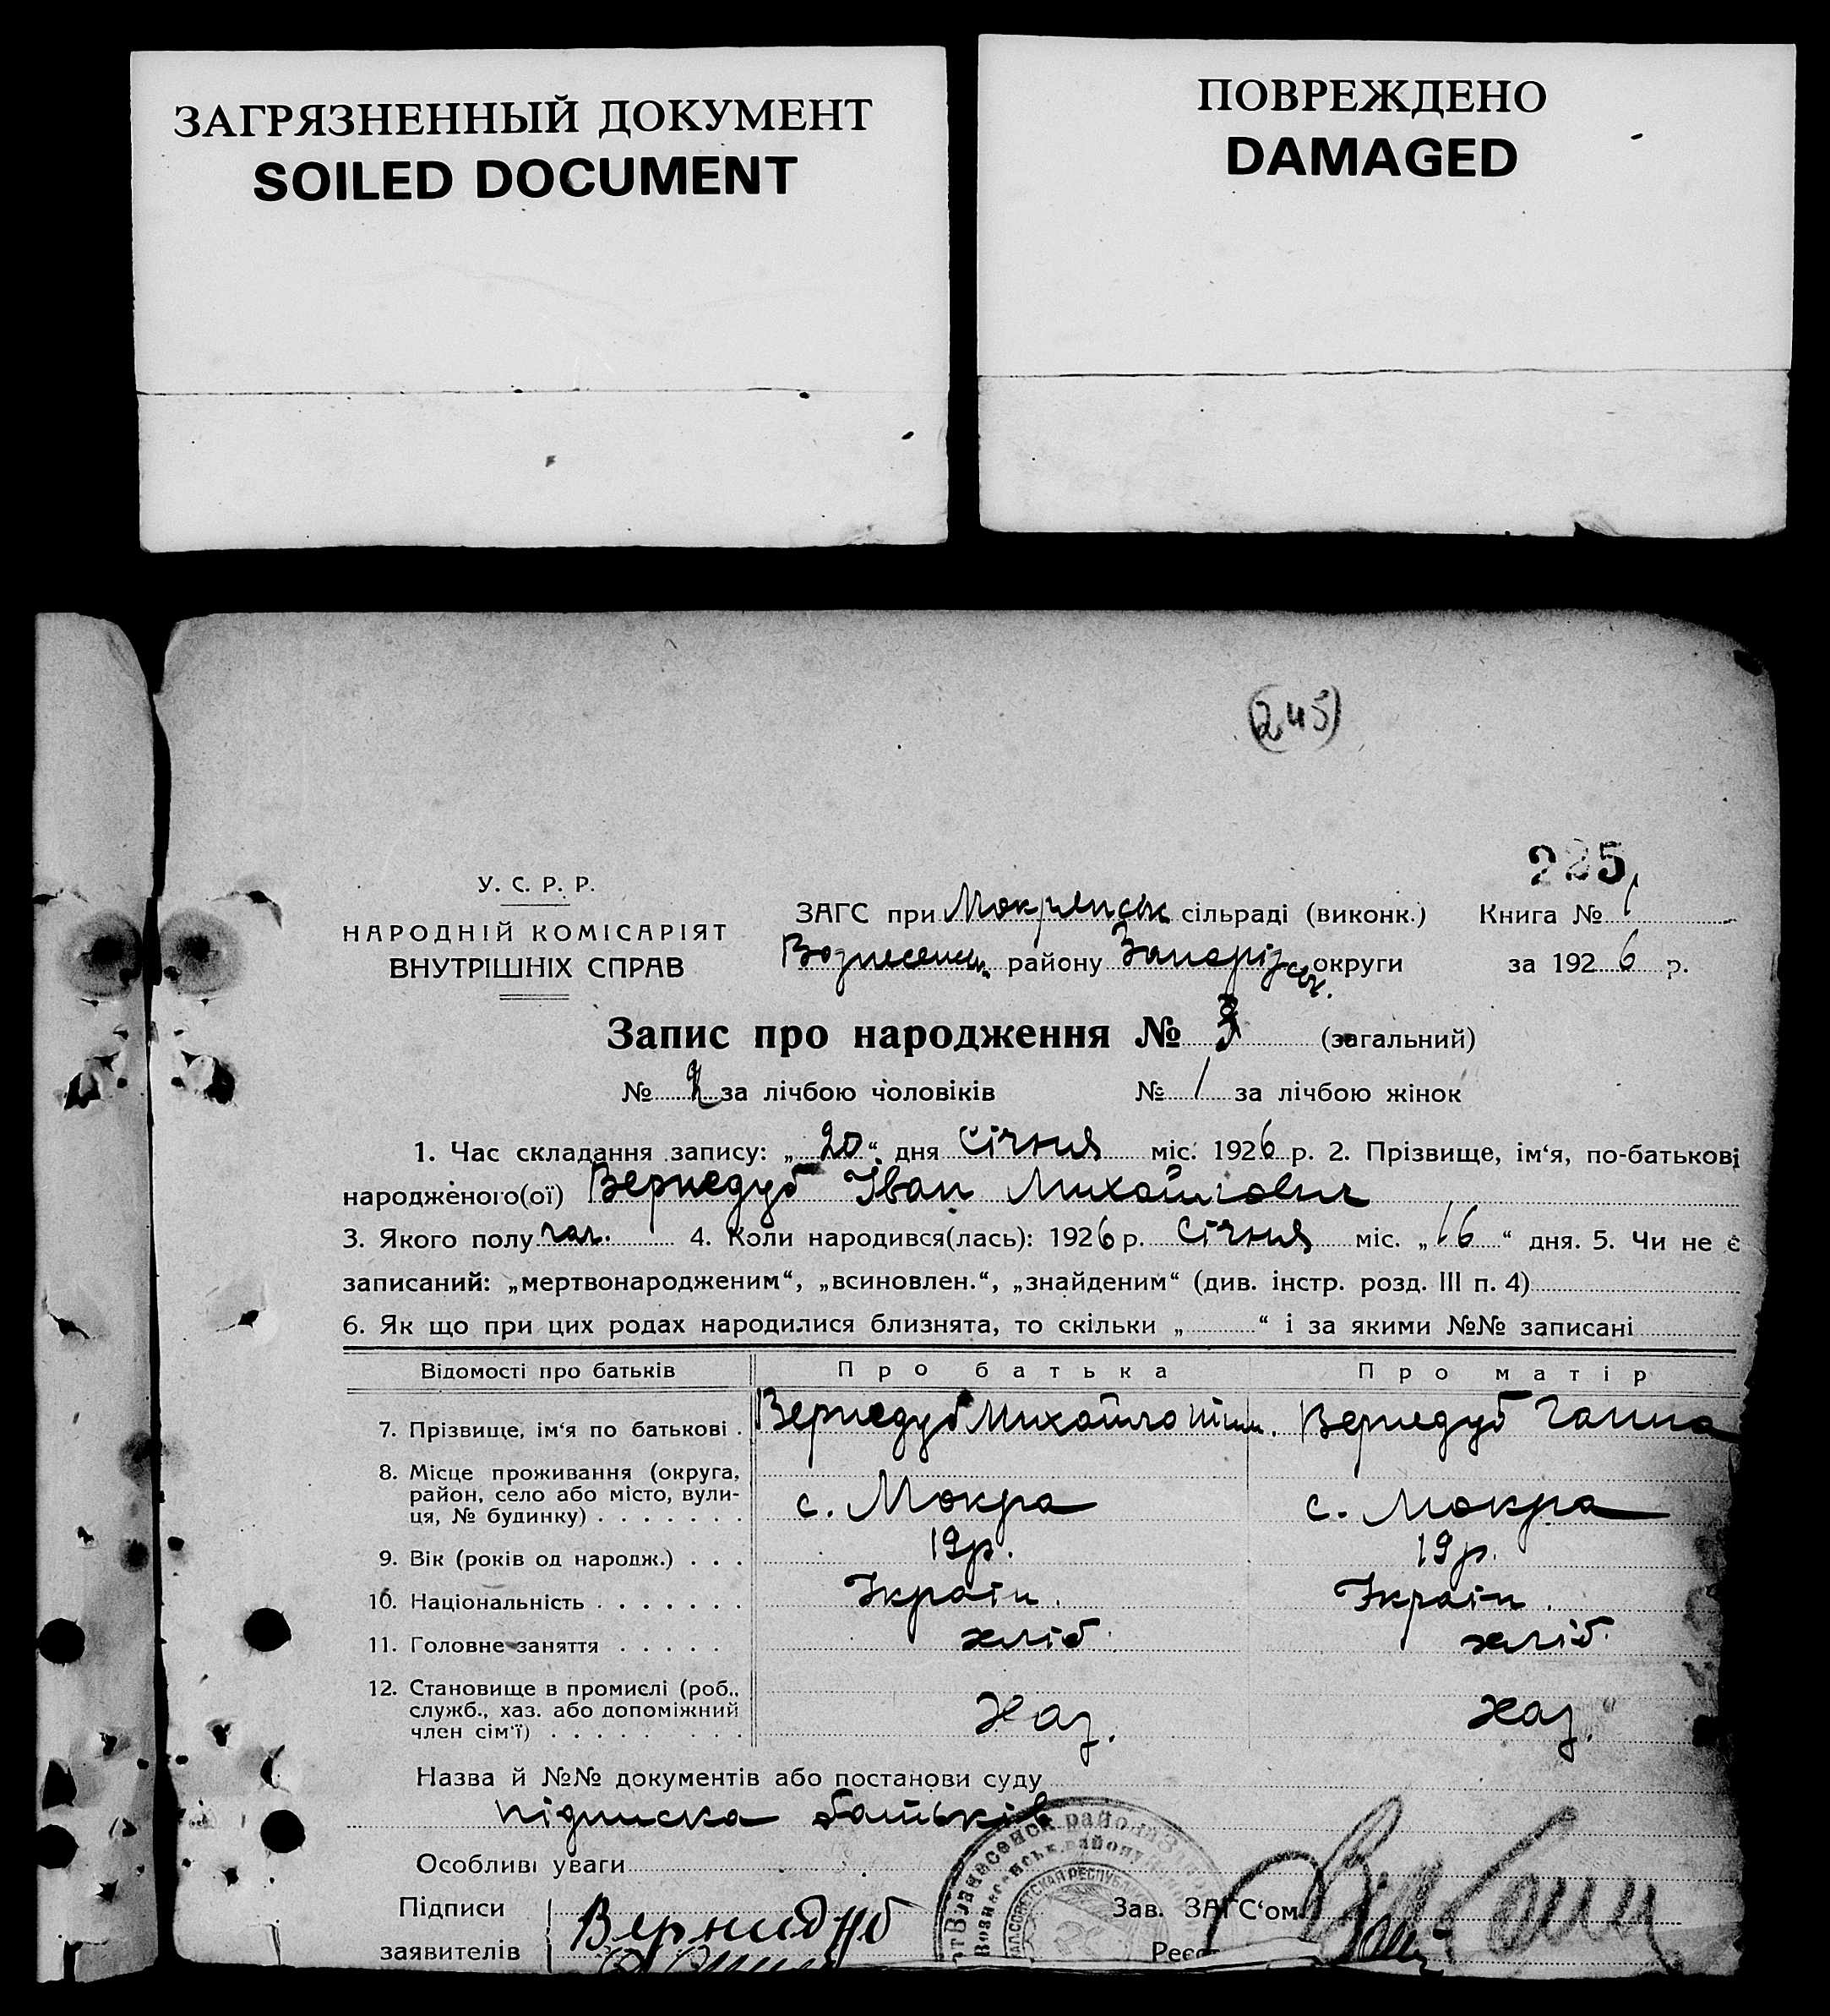 ЗАГРЯЗНЕННЫЙ ДОКУМЕНТ
SOILED DOCUMENT
ПОВРЕЖДЕНО
DAMAGED
(245)
225
У. С. Р. Р.
НАРОДНІЙ КОМІСАРІЯТ
ВНУТРІШНІХ СПРАВ
ЗАГС при Мокрянськ сільраді (виконк.) Книга № 1
Вознесенськ. району Запорізськ. округи за 1926 р.
Запис про народження № 3 (загальний)
№ 2 за лічбою чоловіків № 1 за лічбою жінок
1. Час складання запису: „20“ дня Січня міс. 1926 р. 2. Прізвище, ім'я, по-батькові
народженого(ої) Вернедуб Іван Михайлович
3. Якого полу чол. 4. Коли народився(лась): 1926 р. Січня міс. „16“ дня. 5. Чи не є
записаний: „мертвонародженим“, „всиновлен.“, „знайденим“ (див. інстр. розд. III п. 4)
6. Як що при цих родах народилися близнята, то скільки „ “ і за якими №№ записані
Відомості про батьків Про батька Про матір
7. Прізвище, ім'я по батькові . Вернедуб Михайло Вернедуб Ганна
8. Місце проживання (округа,
район, село або місто, вули-
ця, № будинку) . . . . . . . с. Мокра с. Мокра
9. Вік (років од народж.) . . . 19р. 19р.
10. Національність . . . . . . . Україн. Україн.
11. Головне заняття . . . . . хліб. хліб.
12. Становище в промислі (роб.,
служб., хаз. або допоміжний
член сім'ї) . . . . . . . . Хаз. Хаз.
Назва й №№ документів або постанови суду
підписка батьків
Особливі уваги
Підписи
заявителів
Вернидуб
Зав. ЗАГС'ом
Реєст